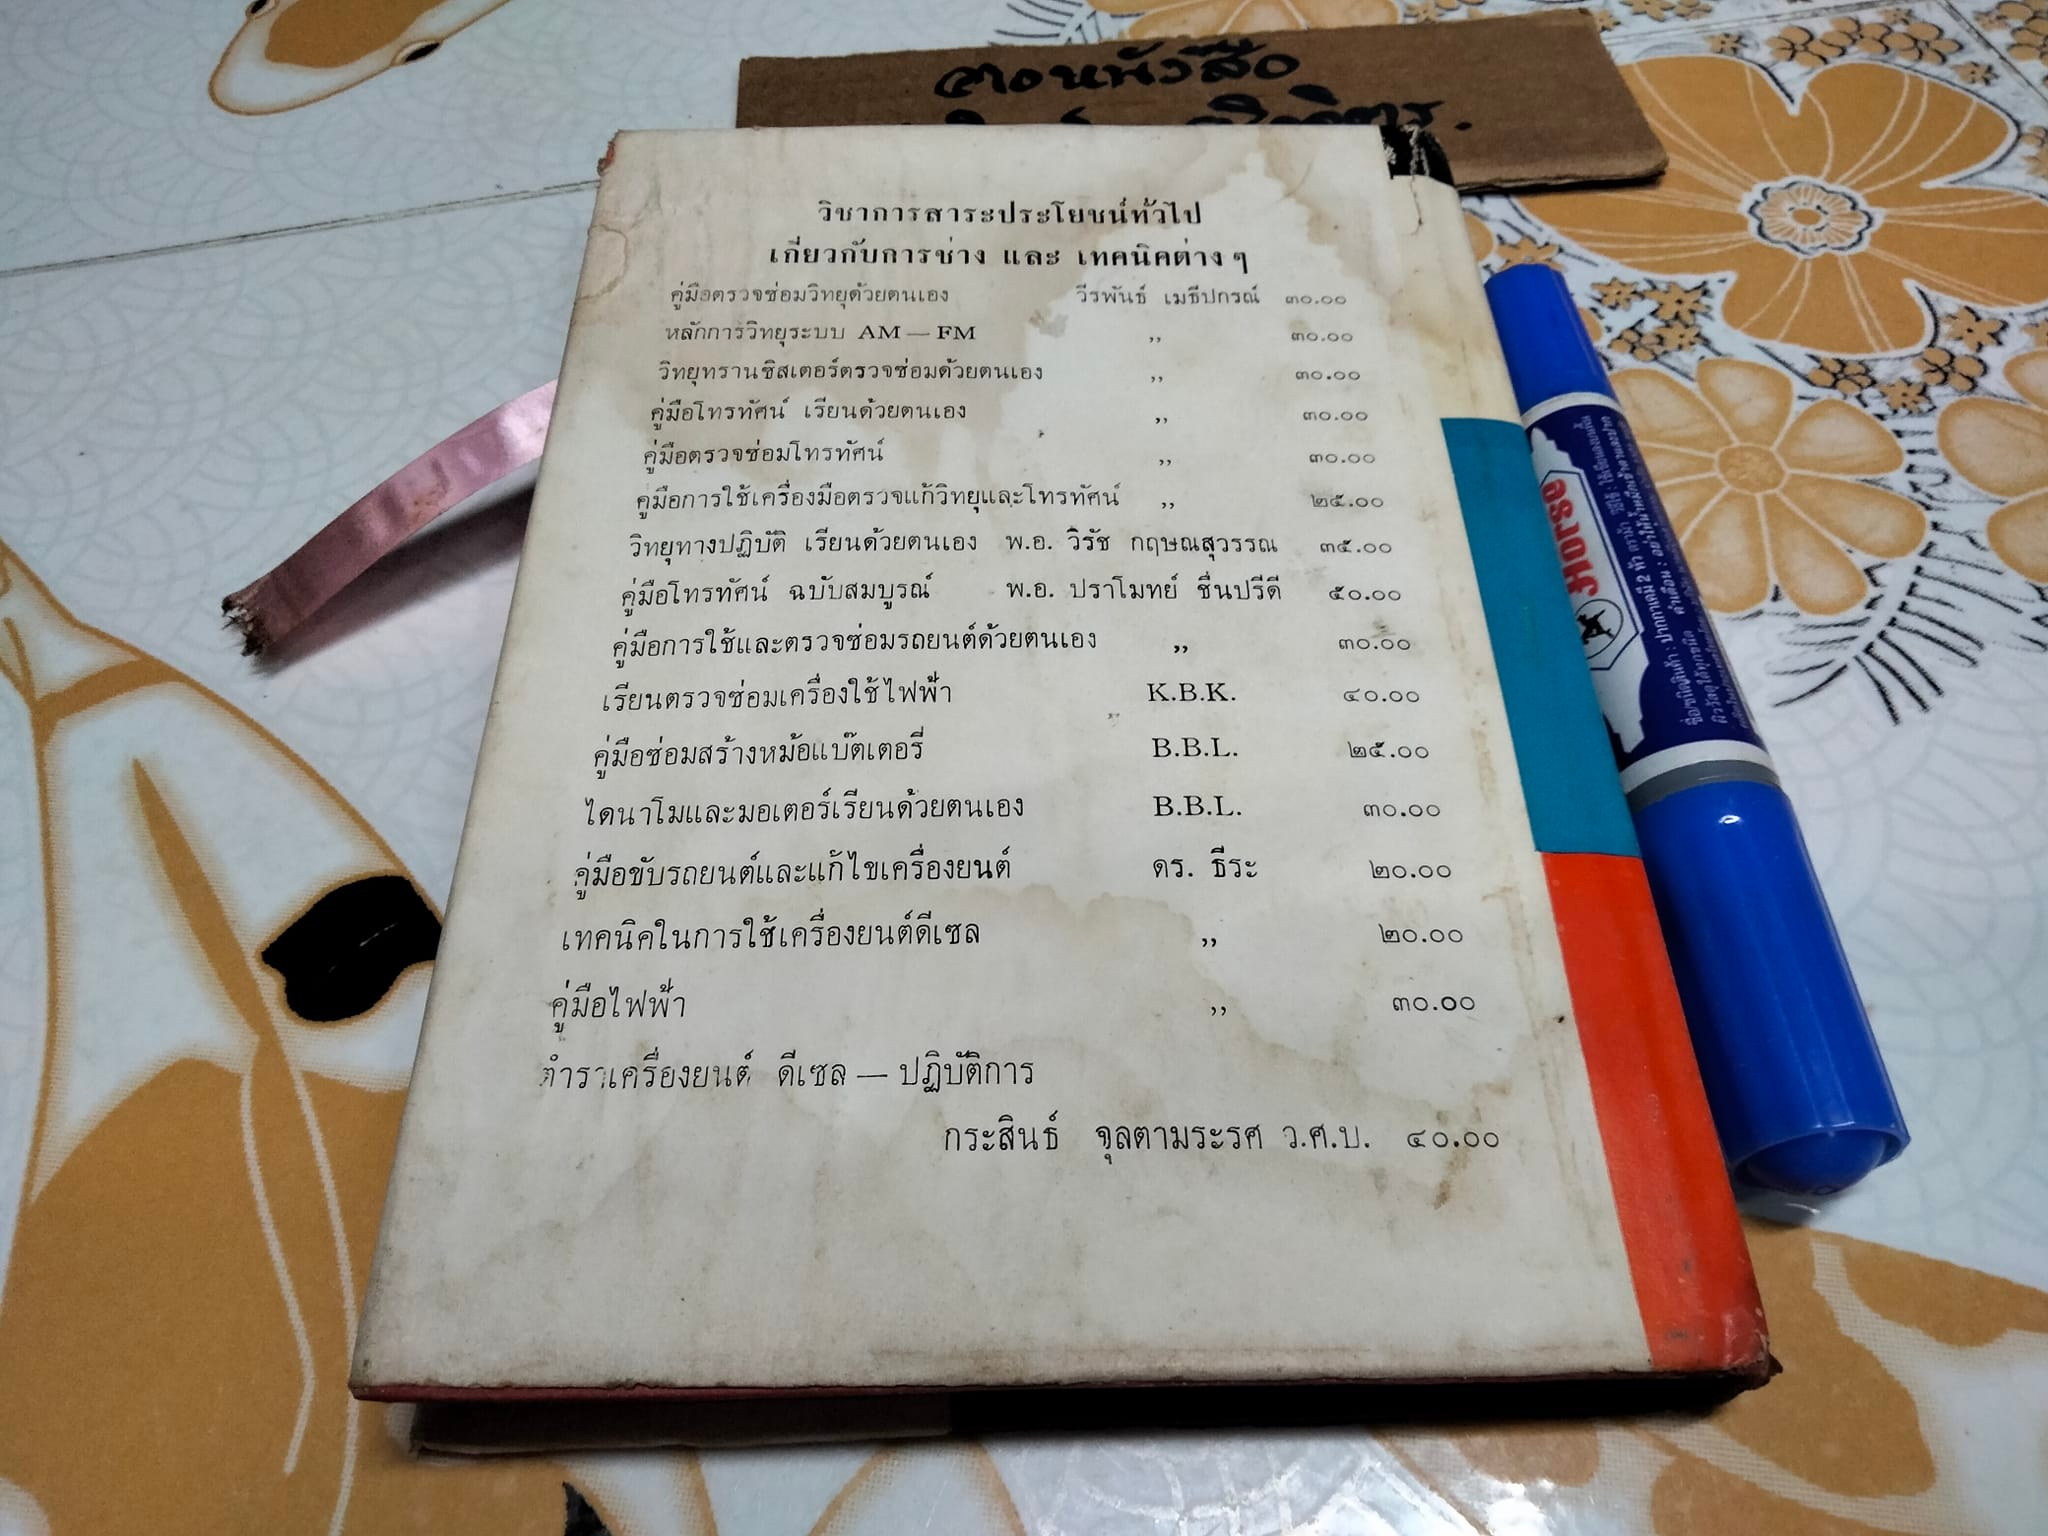 จองหนังสือ
วิชาการสาระประโยชน์ทั่วไป
เกี่ยวกับการช่าง และ เทคนิคต่าง ๆ
คู่มือตรวจซ่อมวิทยุด้วยตนเอง วีรพันธ์ เมธีปกรณ์ ๓๐.๐๐
หลักการวิทยุระบบ AM — FM ,, ๓๐.๐๐
วิทยุทรานซิสเตอร์ตรวจซ่อมด้วยตนเอง ,, ๓๐.๐๐
คู่มือโทรทัศน์ เรียนด้วยตนเอง ,, ๓๐.๐๐
คู่มือตรวจซ่อมโทรทัศน์ ,, ๓๐.๐๐
คู่มือการใช้เครื่องมือตรวจแก้วิทยุและโทรทัศน์ ,, ๒๕.๐๐
วิทยุทางปฏิบัติ เรียนด้วยตนเอง พ.อ. วิรัช กฤษณสุวรรณ ๓๕.๐๐
คู่มือโทรทัศน์ ฉบับสมบูรณ์ พ.อ. ปราโมทย์ ชื่นปรีดี ๕๐.๐๐
คู่มือการใช้และตรวจซ่อมรถยนต์ด้วยตนเอง ,, ๓๐.๐๐
เรียนตรวจซ่อมเครื่องใช้ไฟฟ้า K.B.K. ๔๐.๐๐
คู่มือซ่อมสร้างหม้อแบ๊ตเตอรี่ B.B.L. ๒๕.๐๐
ไดนาโมและมอเตอร์เรียนด้วยตนเอง B.B.L. ๓๐.๐๐
คู่มือขับรถยนต์และแก้ไขเครื่องยนต์ ดร. ธีระ ๒๐.๐๐
เทคนิคในการใช้เครื่องยนต์ดีเซล ,, ๒๐.๐๐
คู่มือไฟฟ้า ,, ๓๐.๐๐
ตำราเครื่องยนต์ ดีเซล — ปฏิบัติการ
กระสินธ์ จุลตามระรศ ว.ศ.บ. ๔๐.๐๐
Horse